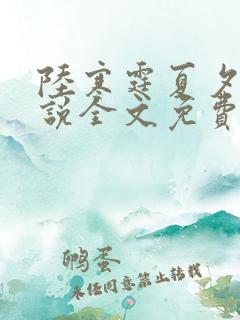 陸寒霆夏夕
說全文免費
鸭蛋
未经同意禁止转载